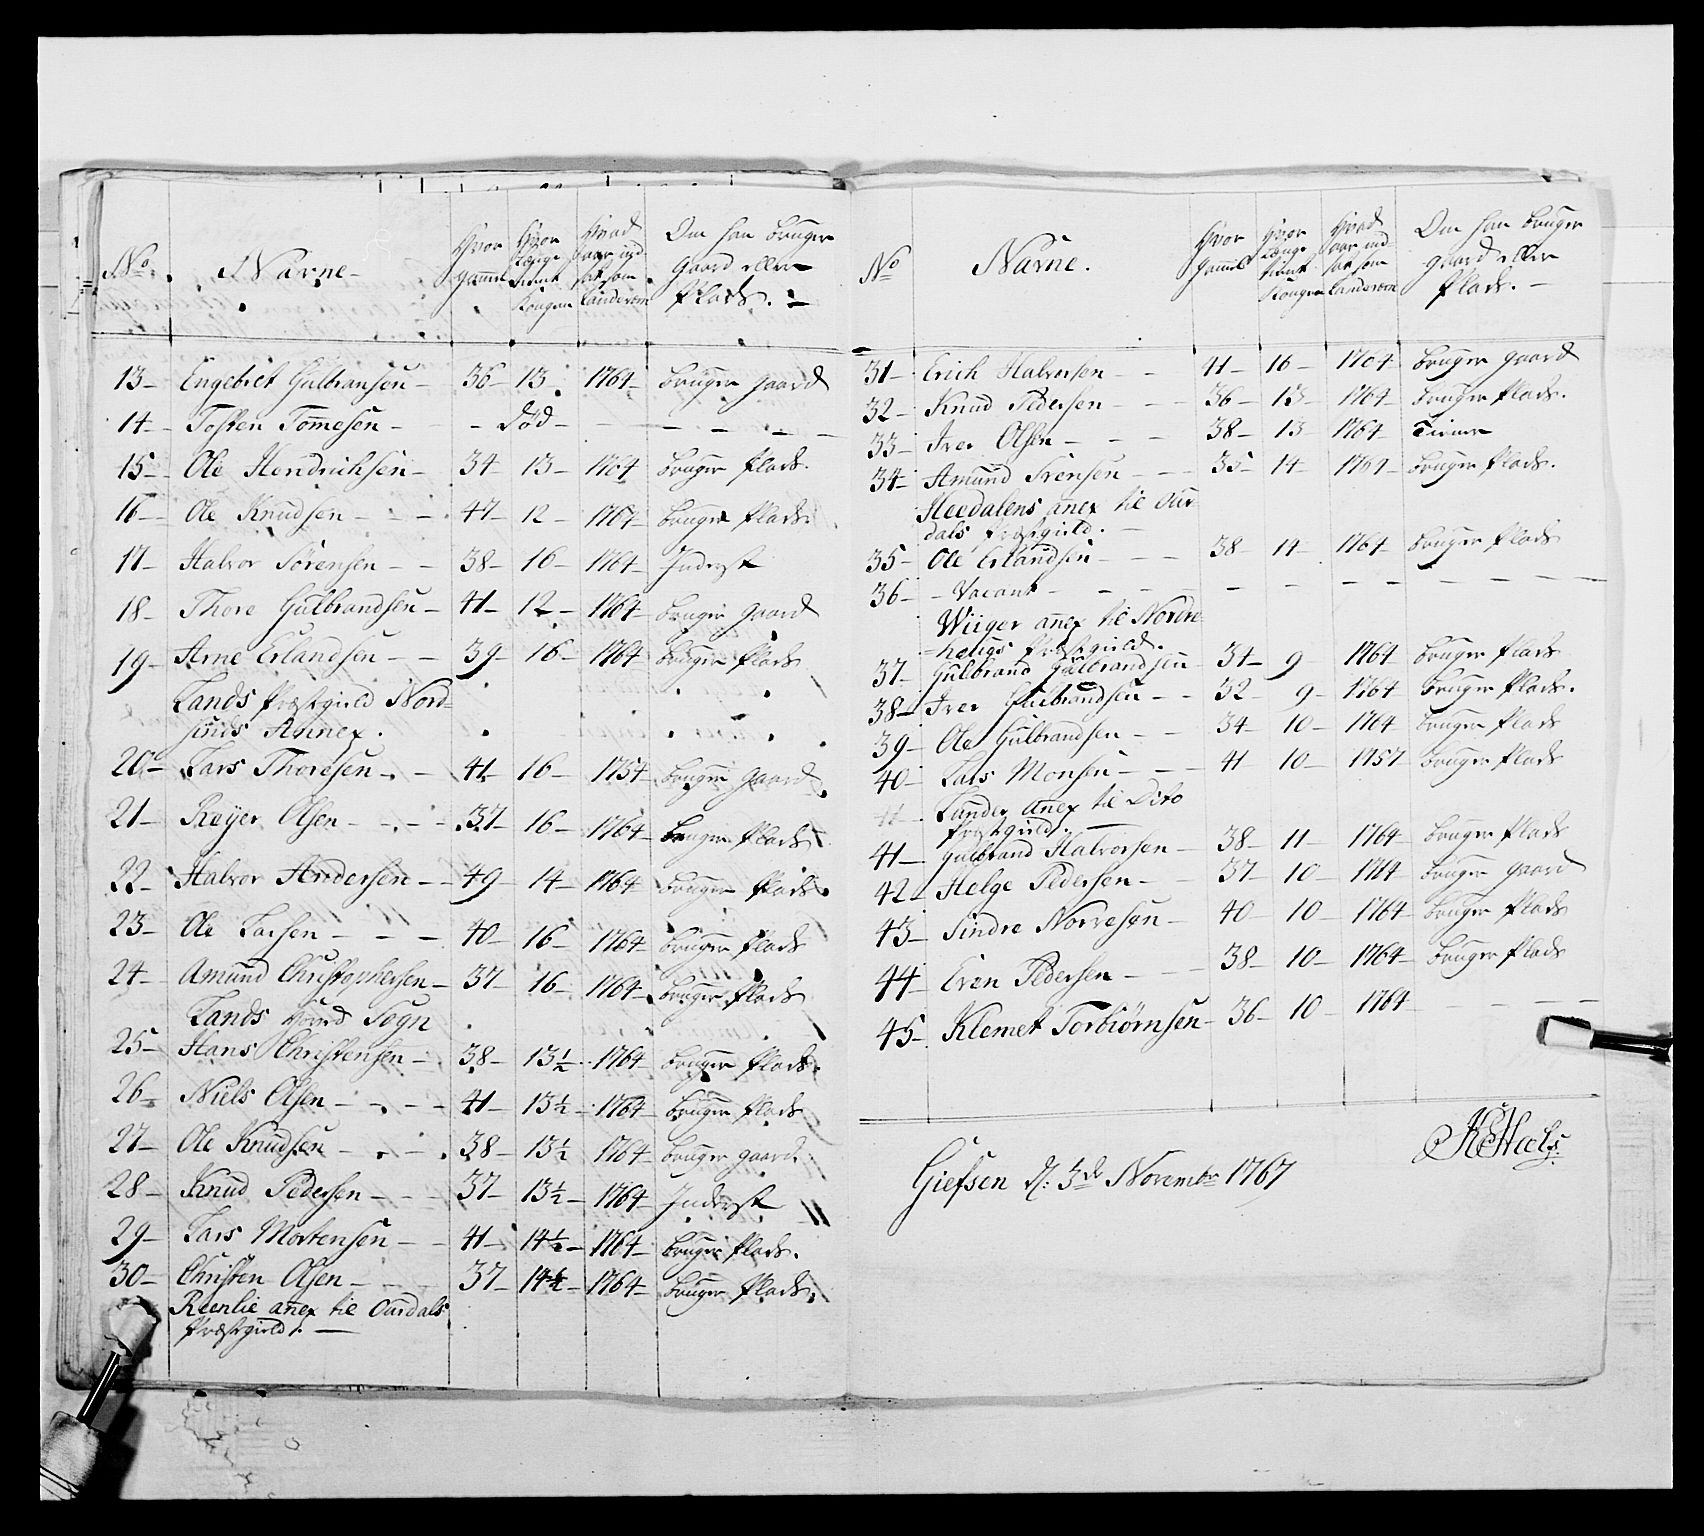 No. Navne Hvor gammel Hvor længe tient Kongen Hvad aar ind sat som Landevern Om han bruger gaard eller Plads.
13 – Engebret Gulbransen – 36 – 13 1764 – bruger gaard
14 – Tosten Tomesen – – död – – – –
15 – Ole Hendrichsen – 34 – 13 – 1764 bruger Plads.
16 – Ole Knudsen – – – 47 – 12 – 1764 – bruger Plads
17 – Halvor Sörensen – – 38 – 16 – 1764 – Inderst
18 – Thore Gulbrandsen – 41 – 12 – 1764 – bruger gaard
19 – Arne Erlandsen – – 39 – 16 – 1764 bruger Plads
Lands Præstgield Nord=
sinds Annex.
20 – Lars Thoresen – – 41 – 16 – 1754 bruger gaard
21 – Reyer Olsen – – – 37 – 16 – 1764 – bruger Plads
22 – Halvor Andersen – – 49 – 14 – 1764 bruger Plads.
23 – Ole Larsen – – – 40 – 16 – 1764 bruger Plads
24 – Amund Christophersen – 37 – 16 – 1764 – bruger Plads
Lands Hoved Sogn
25 – Hans Christensen – 38 – 13½ 1764 bruger Plads.
26 – Niels Olsen – – – 41 – 13½ – 1764 bruger Plads
27 – Ole Knudsen – – – 38 – 13½ 1764 bruger gaard.
28 – Knud Pedersen – – – 37 – 13½ – 1764 Inderst
29 – Lars Mortensen – – 41 – 14½ – 1764 – bruger Plads.
30 – Christen Olsen – – – 37 – 14½ – 1764 – bruger Plads.
Reenlie anex til Ourdals
Præstgield. –
No Navne. Hvor gammel Hvor længe tient Kongen Hvad aar ind sat som Landevern Om han bruger gaard eller Plads. –
31 – Erich Halvorsen – – 41 – 16 – 1764 – bruger gaard
32 – Knud Pedersen – – 36 – 13 – 1764 – bruger Plads.
33 – Iver Olsen – – – 38 – 13 – 1764 –
34 – Amund Svensen – – 35 – 14 – 1764 – bruger Plads.
Heedalens anex til Our
dals Præstgield. –
35 – Ole Erlandsen – – 38 – 14 – 1764 – bruger Plads
36 – – Vacant – – – – – – – –
Wiiger anex til Nordre
=houge Præstgield.
37 – Gulbrand Gulbrandsen 34 – 9 – 1764 bruger Plads
38 – Iver Gulbrandsen – – 32 9 – 1764 bruger Plads.
39 – Ole Gulbrandsen – – 34 – 10 – 1764 bruger Plads
40 – Lars Monsen – – 41 10 – 1757 bruger Plads
Lunder anex til Dito
Præstgield. –
41 – Gulbrand Halvorsen – 38 – 11 – 1764 – bruger Plads
42 – Helge Pedersen – – 37 – 10 – 1764 – bruger gaard
43 – Sindre Norvesen – 40 – 10 – 1764 – bruger Plads
44 – Even Pedersen – – 38 – 10 – 1764 – bruger Plads
45 – Klemet Torbiörnsen – 36 – 10 – 1764 – – –
Giefsen d: 3de Novembr 1767